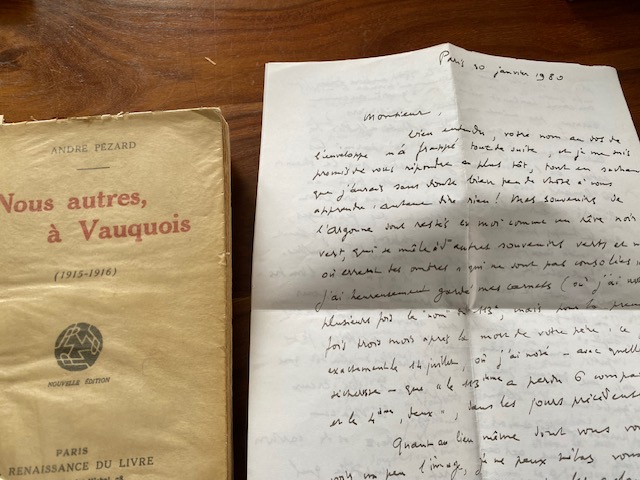 ANDRÉ PÉZARD
Nous autres,
à Vauquois
(1915-1916)
NOUVELLE ÉDITION
PARIS
RENAISSANCE DU LIVRE
Paris 30 janvier 1980
Monsieur,
Bien entendu, votre nom au dos de
l'enveloppe m'a frappé tout de suite, et je me suis
promis de vous répondre au plus tôt, tout en sachant
que j'aurais sans doute bien peu de chose à vous
apprendre, autant dire rien ! Mes souvenirs de
l'Argonne sont restés en moi comme un rêve noir
vert, qui se mêle à d'autres souvenirs verts et
où errent des ombres qui ne sont pas consolées
J'ai heureusement gardé mes carnets (où j'ai
plusieurs fois le nom du 113e, mais pour la
fois trois mois après la mort de votre père : ce
exactement le 14 juillet, où j'ai noté – avec quelle
sécheresse – que "le 113ème a perdu 6 compa
et le 4ème, deux", dans les jours précédents
Quant au lieu même dont vous
un peu l'image, je ne peux hélas vous